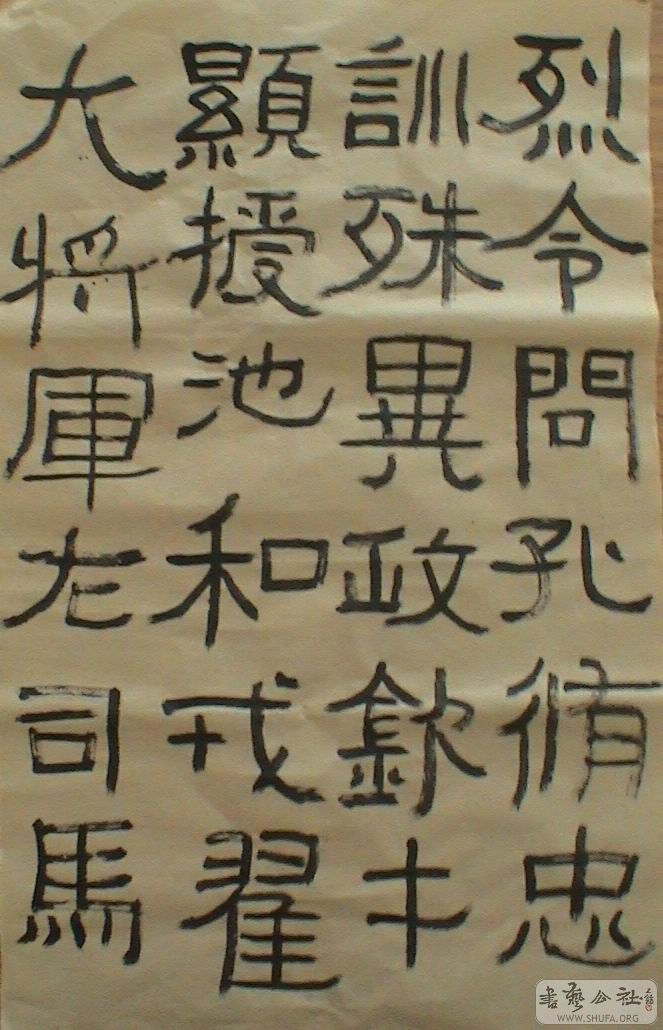 烈令問孔脩忠
訓殊異政欽才
顯授池和戎翟
大將軍左司馬
書藝公社
WWW.SHUFA.ORG